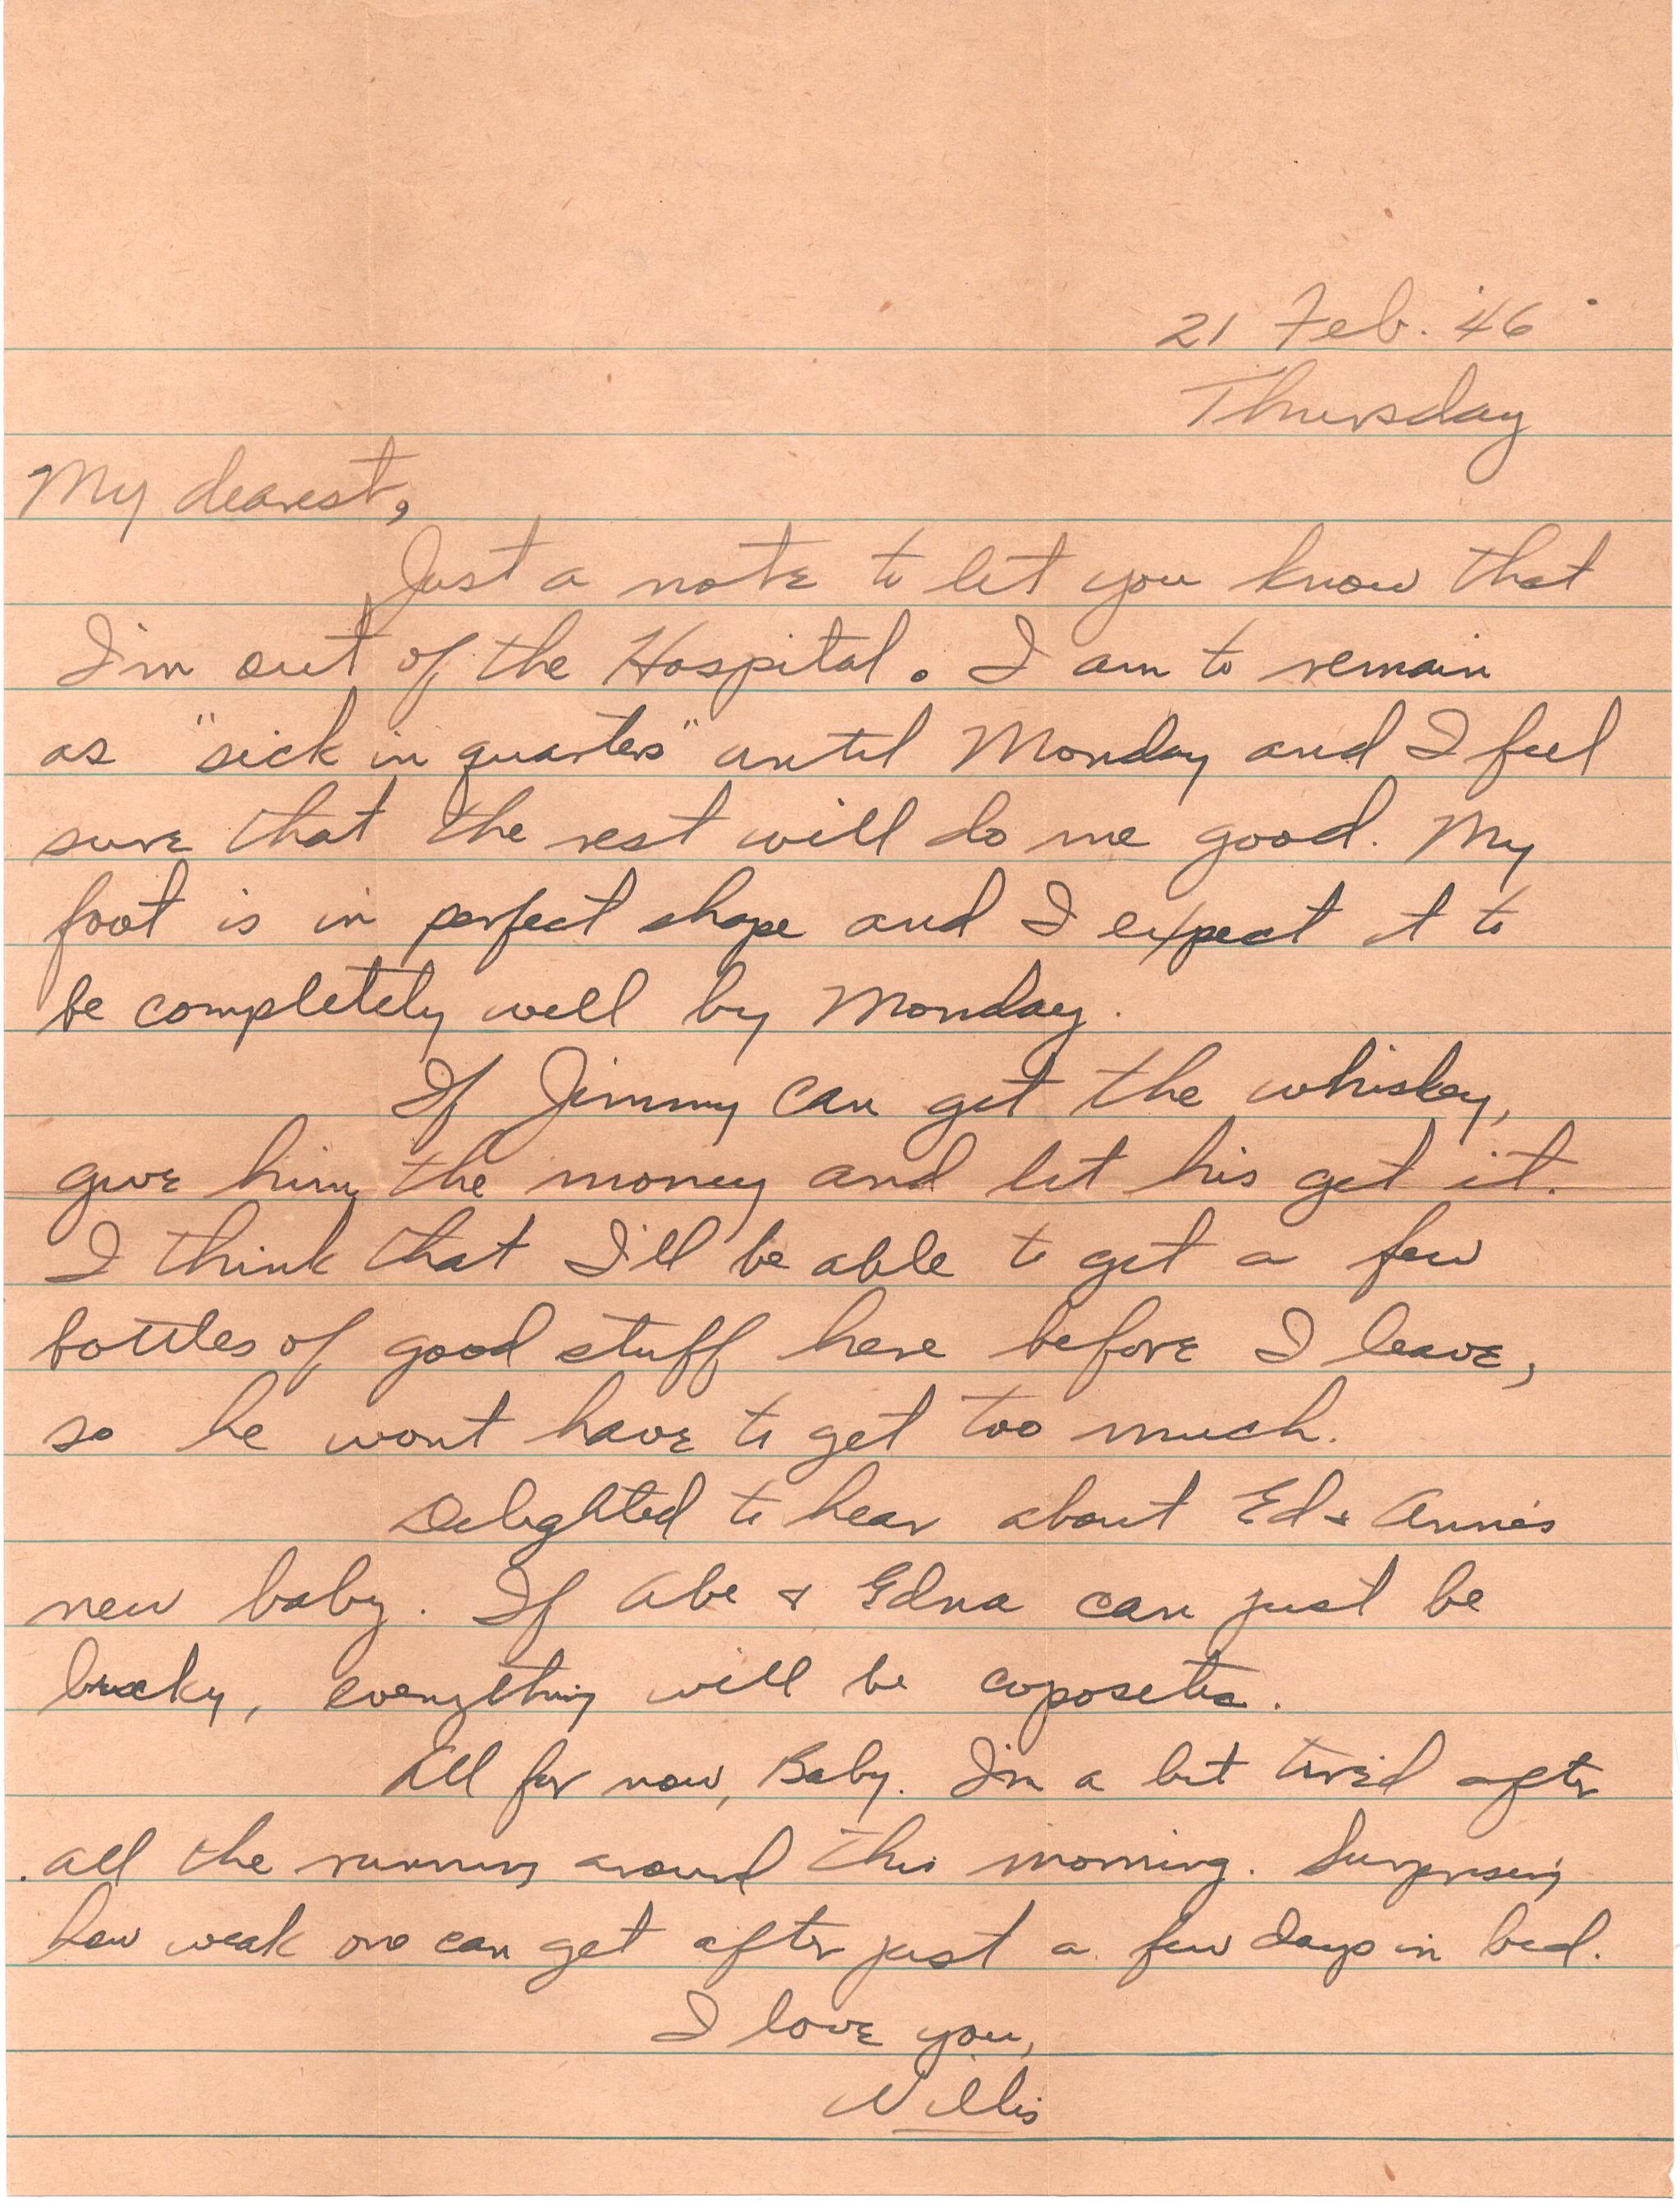 21 Feb. '46
Thursday
My dearest,
Just a note to let you know that
I'm out of the Hospital. I am to remain
as "sick in quarters" until Monday and I feel
sure that the rest will do me good. My
foot is in perfect shape and I expect it to
be completely well by Monday.
If Jimmy can get the whiskey,
give him the money and let his get it.
I think that I'll be able to get a few
bottles of good stuff here before I leave,
so he wont have to get too much.
Delighted to hear about Ed & Anne's
new baby. If Abe & Edna can just be
lucky, everything will be coposetic.
All for now, Baby. I'm a bit tired after
all the running around this morning. Surprising
how weak one can get after just a few days in bed.
I love you,
Willis